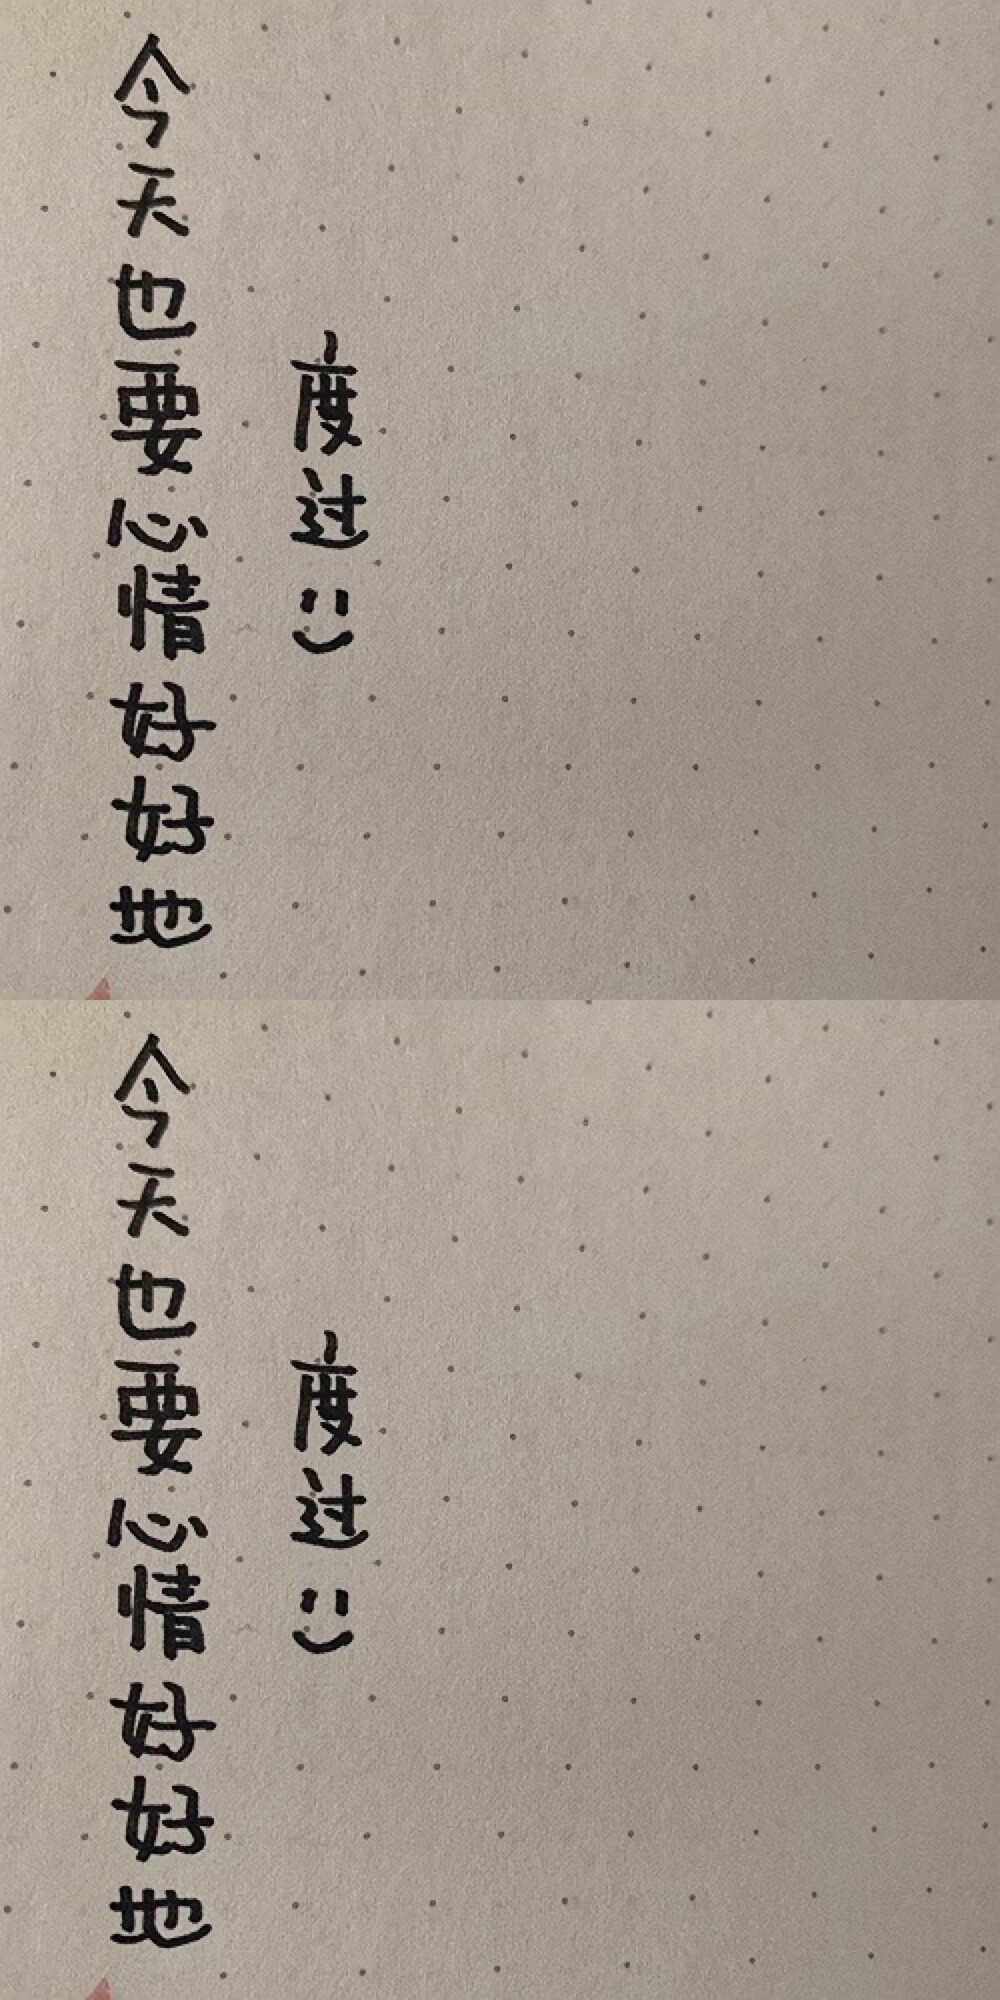 今天也要心情好好地
度过 :)
今天也要心情好好地
度过 :)